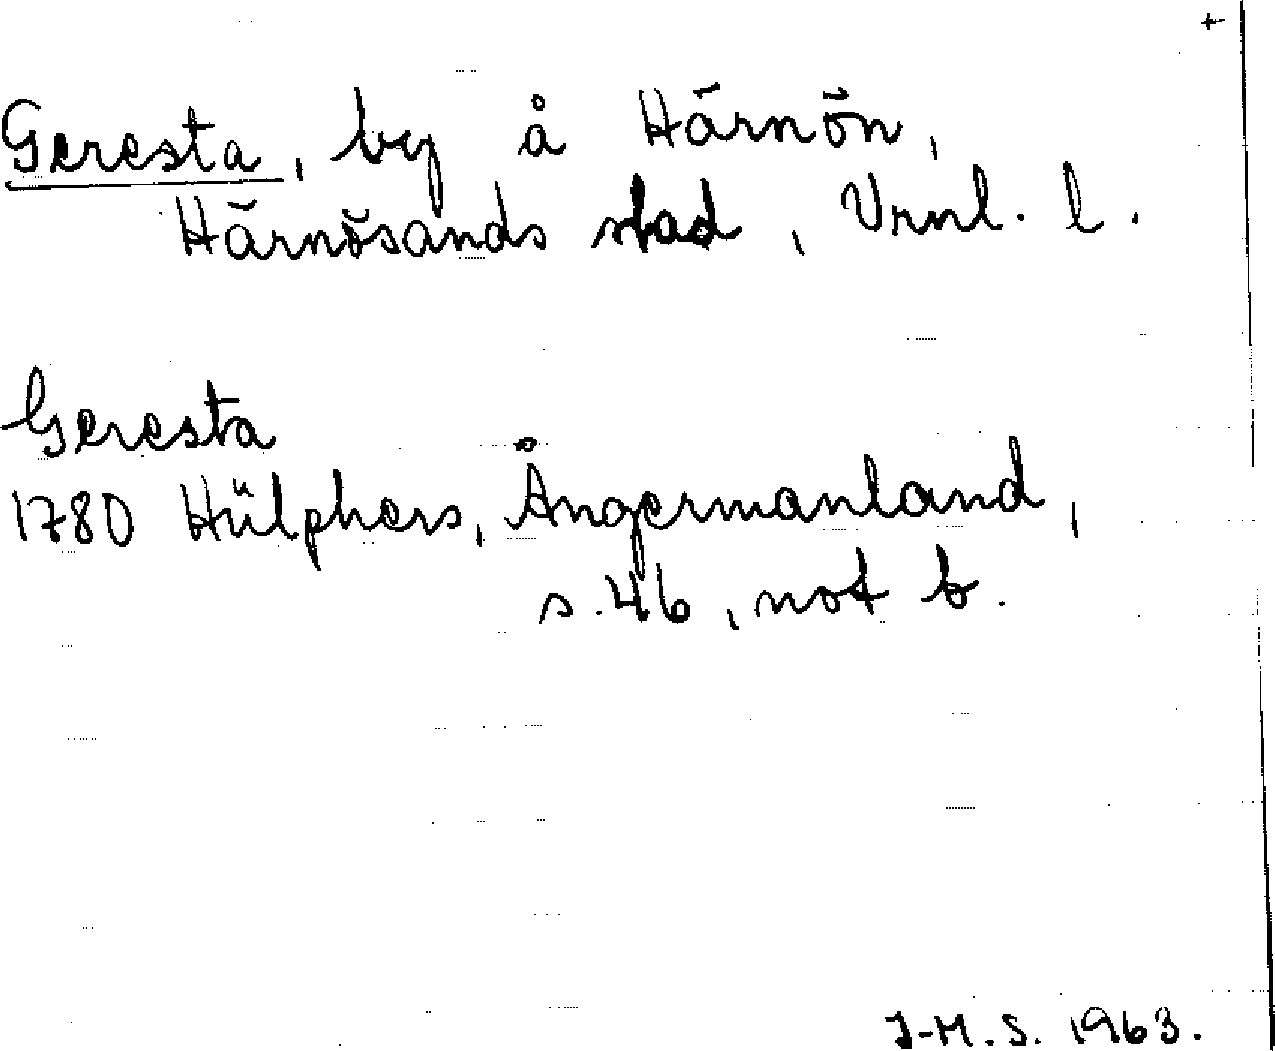 +
Geresta, by å Härnön,
Härnösands stad, Vrnl. l.
Geresta
1780 Hülphers, Ångermanland,
s. 46, not b.
J-H.S. 1963.